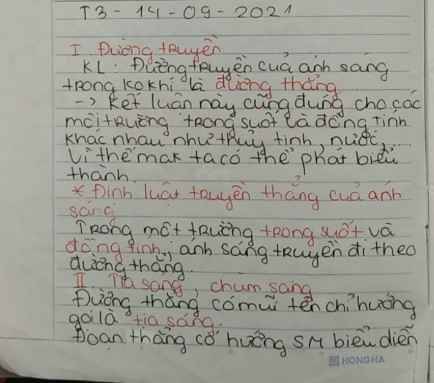 T3-14-09-2021
I Đường truyền
KL: Đường truyền của ánh sáng
trong ko khí là đường thẳng
-> Kết luận này cũng đúng cho các
môi trường trong suốt và đồng tính
khác nhau như thủy tinh, nước...
Vì thế mak ta có thể phát biểu
thành
* Định luật truyền thẳng của ánh
sáng
Trong môt trường trong suốt và
đồng tính, ánh sáng truyền đi theo
đường thẳng.
II. Tia sáng, chùm sáng
Đường thẳng có mũi tên chỉ hướng
gọi là tia sáng.
Đoạn thẳng có hướng SM biểu diễn
HONG HA